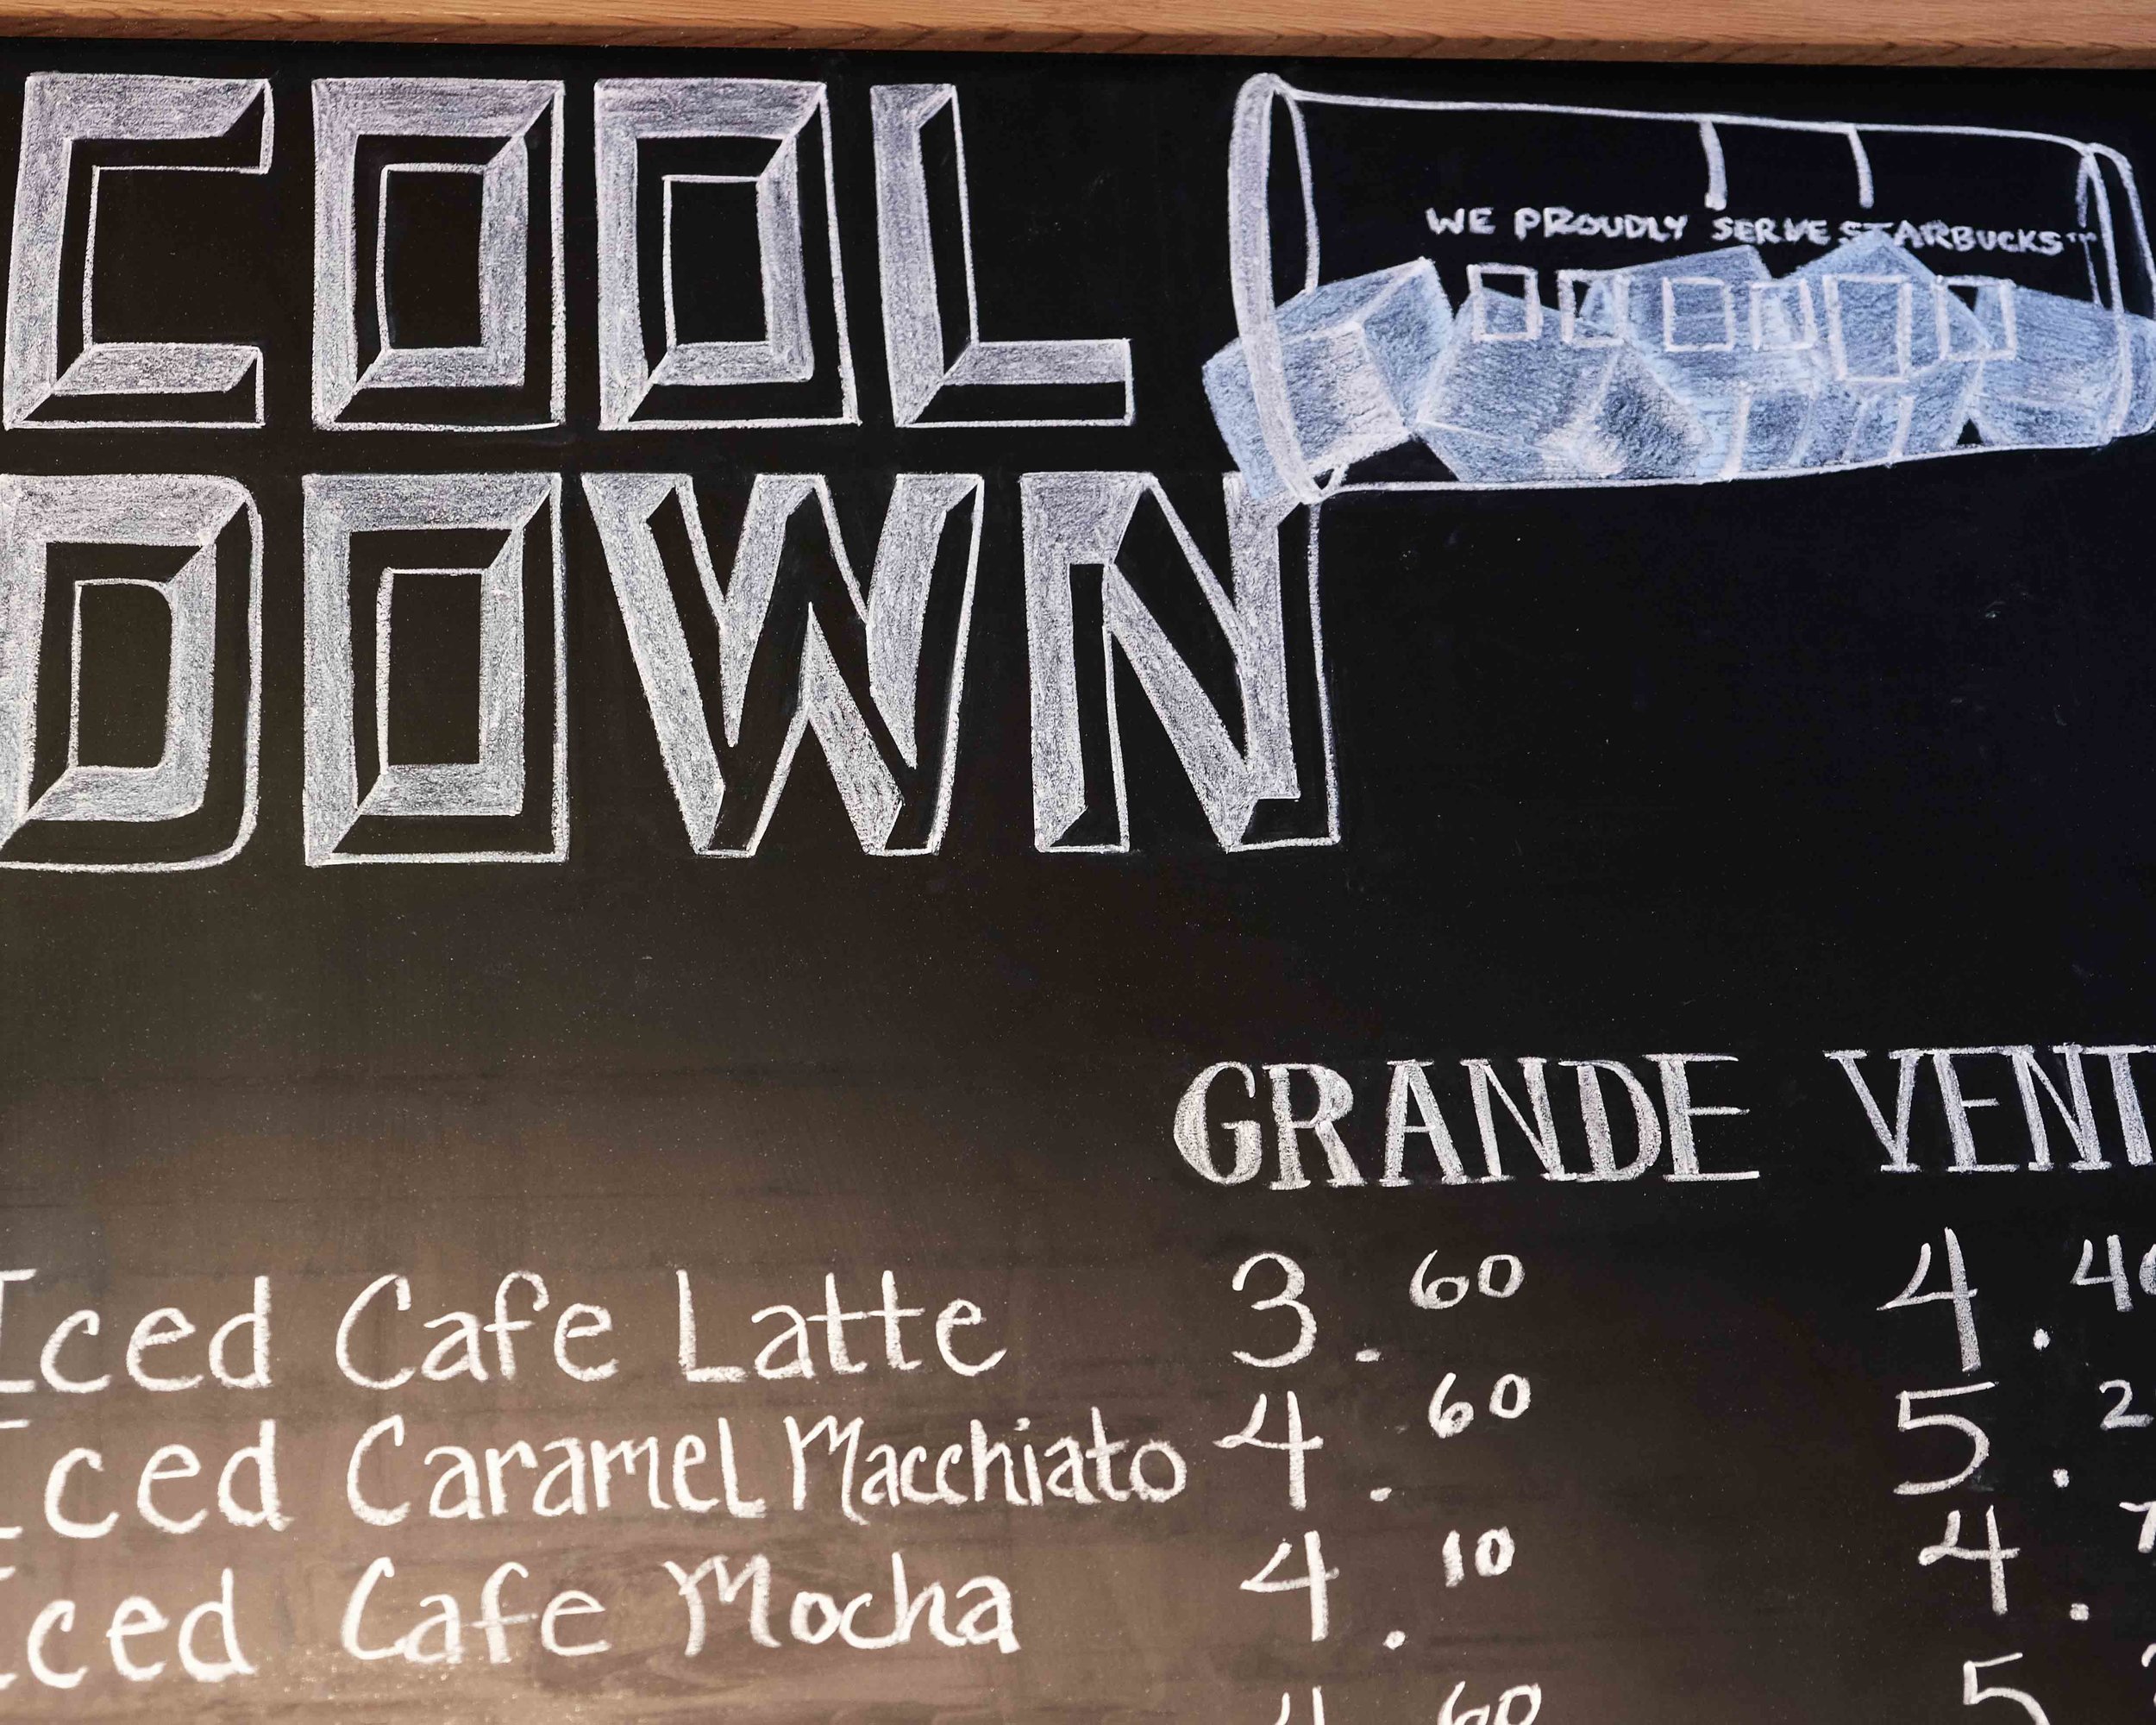 COOL
DOWN
WE PROUDLY SERVE STARBUCKS™
GRANDE
Iced Cafe Latte 3.60 4.
Iced Caramel Macchiato 4.60 5.
Iced Cafe Mocha 4.10 4.
60 5